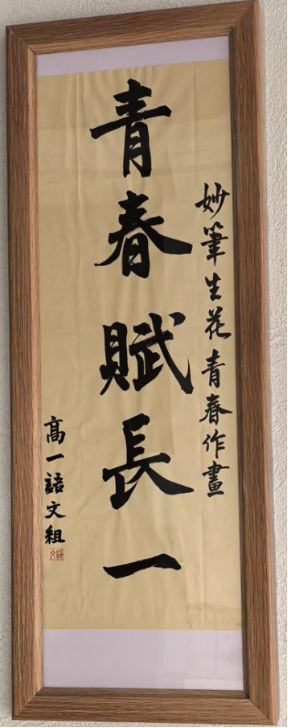 妙筆生花青春作畫
青春賦長一
高一語文組